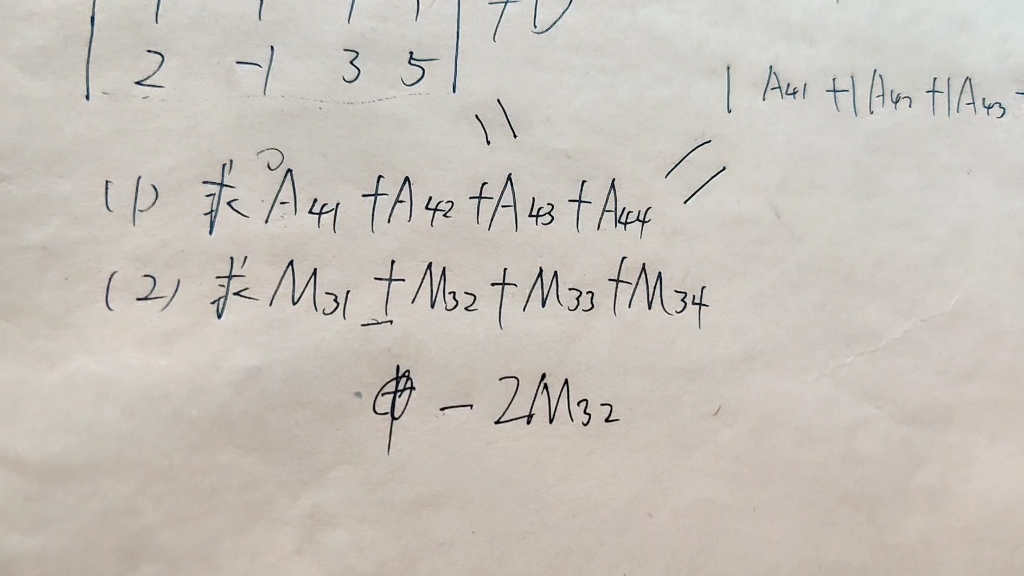 2 -1 3 5
1 A41 +1 A42 +1 A43
(1) 求 A41 +A42 +A43 +A44 =
(2) 求 M31 +M32 +M33 +M34
- 2M32